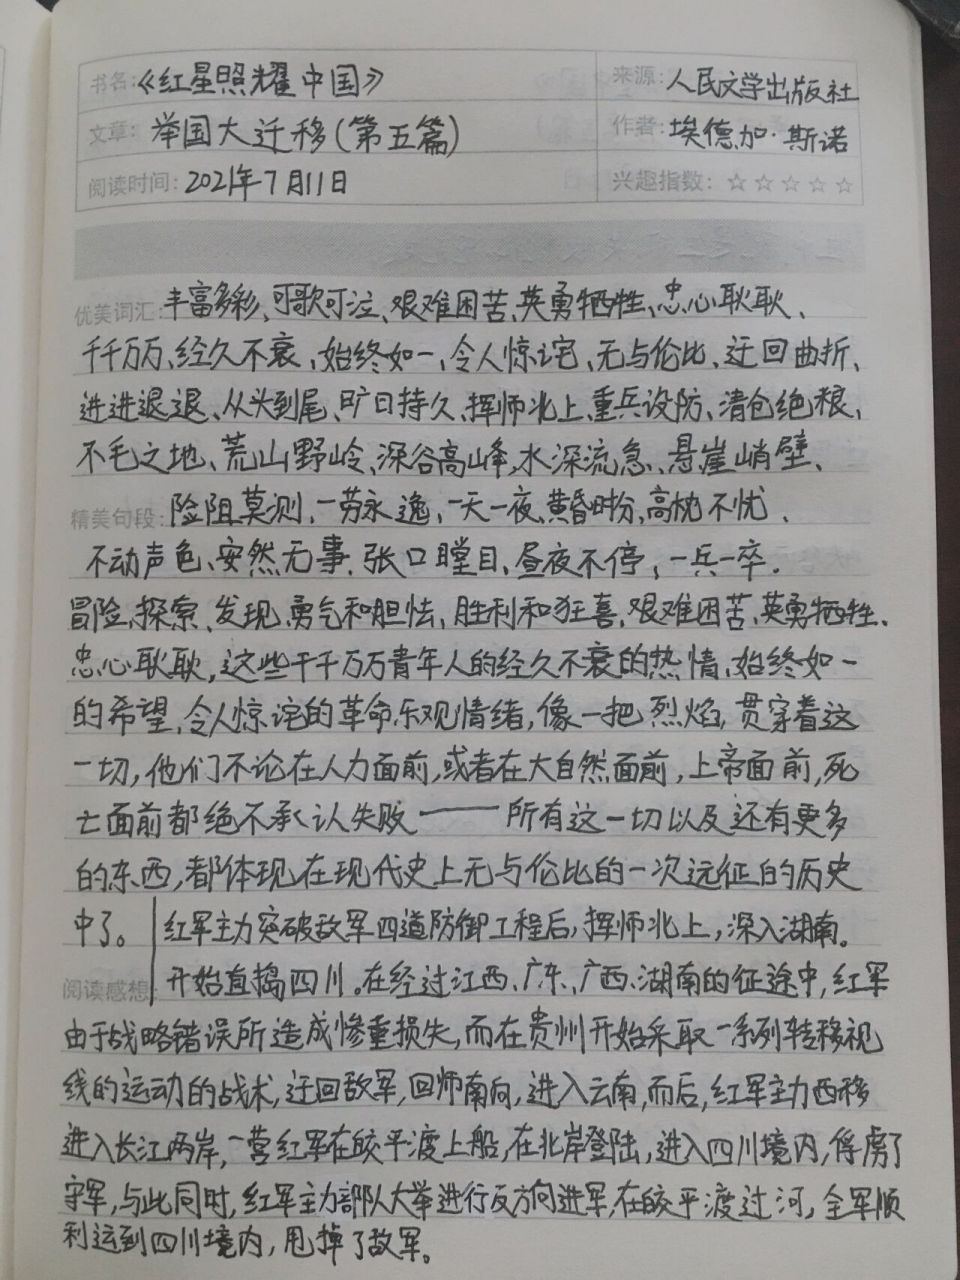 书名:《红星照耀中国》 来源: 人民文学出版社
文章: 举国大迁移(第五篇) 作者: 埃德加·斯诺
阅读时间: 2021年7月11日 兴趣指数: ☆☆☆☆☆
优美词汇: 丰富多彩、可歌可泣、艰难困苦、英勇牺牲、忠心耿耿、
千千万万、经久不衰、始终如一、令人惊诧、无与伦比、迂回曲折、
进进退退、从头到尾、旷日持久、挥师北上、重兵设防、清仓绝粮、
不毛之地、荒山野岭、深谷高峰、水深流急、悬崖峭壁、
精美句段: 险阻莫测、一劳永逸、一天一夜、黄昏时分、高枕不忧、
不动声色、安然无事、张口瞠目、昼夜不停、一兵一卒.
冒险、探索、发现、勇气和胆怯、胜利和狂喜、艰难困苦、英勇牺牲、
忠心耿耿,这些千千万万青年人的经久不衰的热情、始终如一
的希望、令人惊诧的革命乐观情绪,像一把烈焰,贯穿着这
一切,他们不论在人力面前,或者在大自然面前,上帝面前,死
亡面前都绝不承认失败——所有这一切以及还有更多
的东西,都体现在现代史上无与伦比的一次远征的历史
中了。 红军主力突破敌军四道防御工程后,挥师北上,深入湖南。
阅读感想: 开始直捣四川。在经过江西、广东、广西、湖南的征途中,红军
由于战略错误所造成惨重损失,而在贵州开始采取一系列转移视
线的运动的战术,迂回敌军,回师南向,进入云南,而后,红军主力西移
进入长江两岸,一营红军在皎平渡上船,在北岸登陆,进入四川境内,俘虏了
守军,与此同时,红军主力部队大举进行反方向进军,在皎平渡过河,全军顺
利运到四川境内,甩掉了敌军。